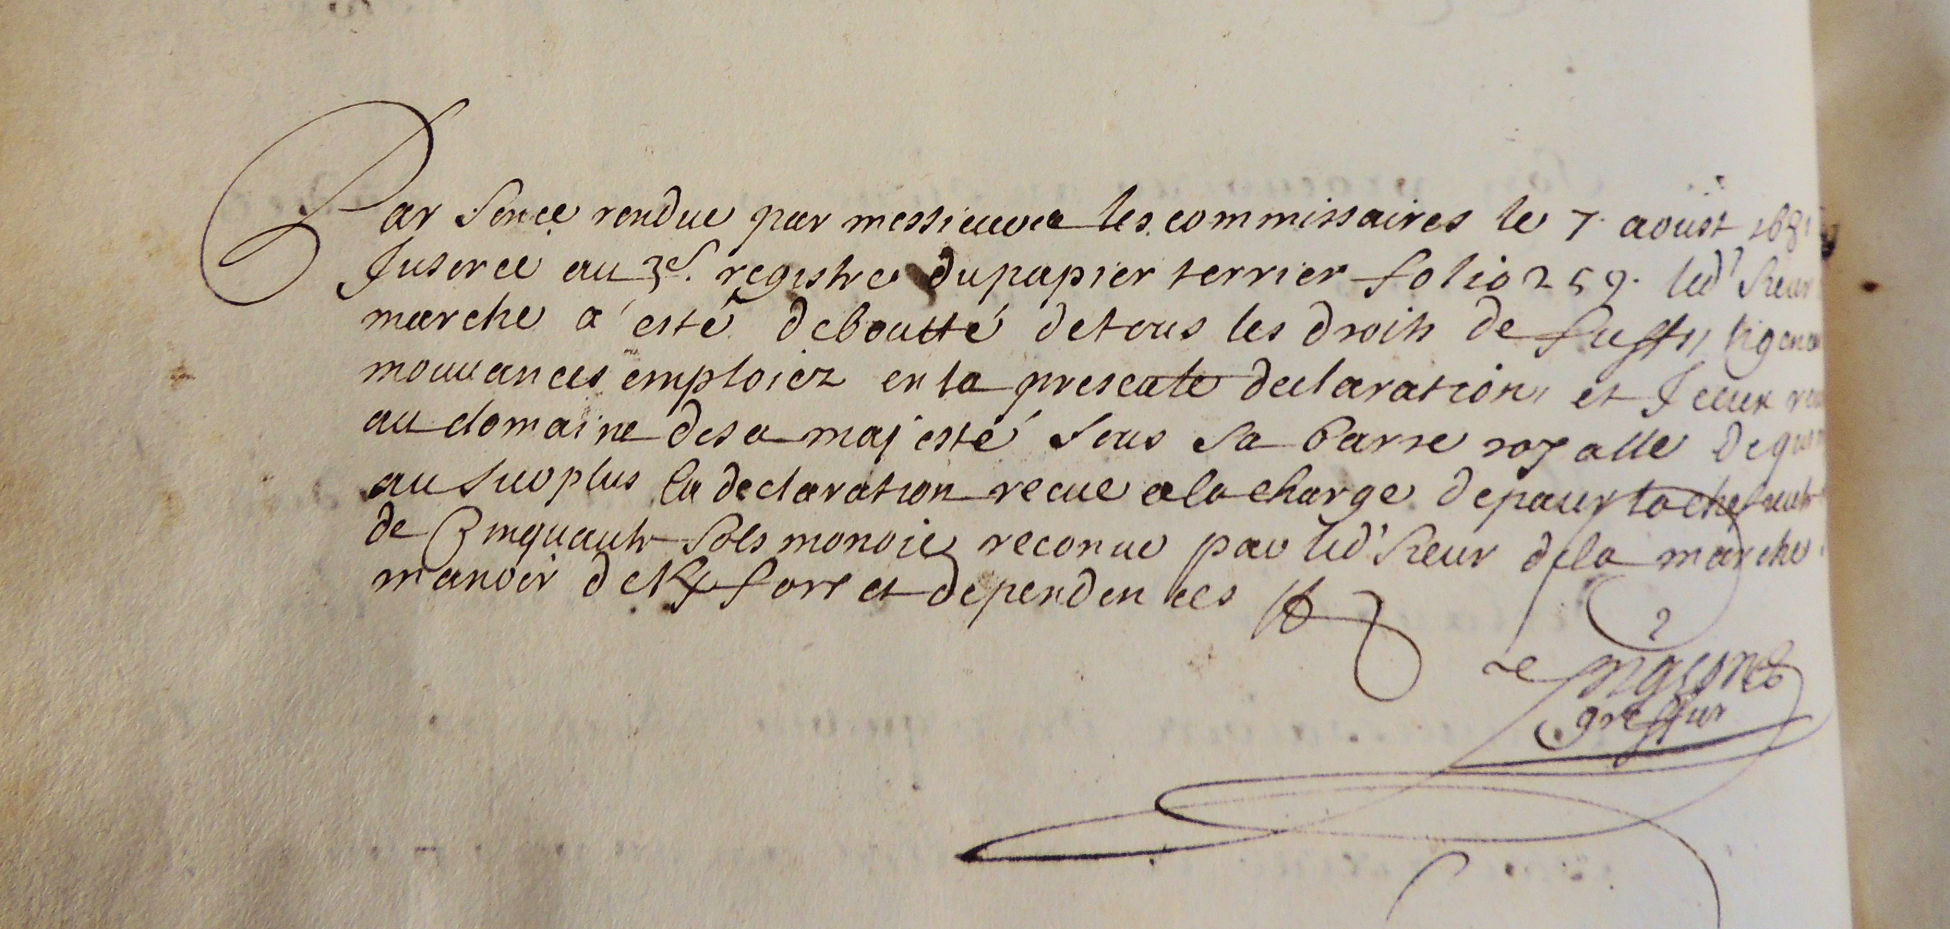 Par Sence rendue par messieurs les commissaires le 7. aoust 168
Inseree au 3e. registre du papier terrier folio 259. led' Sieur
marche a esté deboutté de tous les droits de
mouvances emploiez en la presente declaration, et Iceux
au domaine de sa majesté sous sa barre royalle
au surplus la declaration receue a la charge de paier la cheffrente
de Cinquante sols monoie reconue par led' Sieur de la marche
manoir de K/fors et dependences
greffier